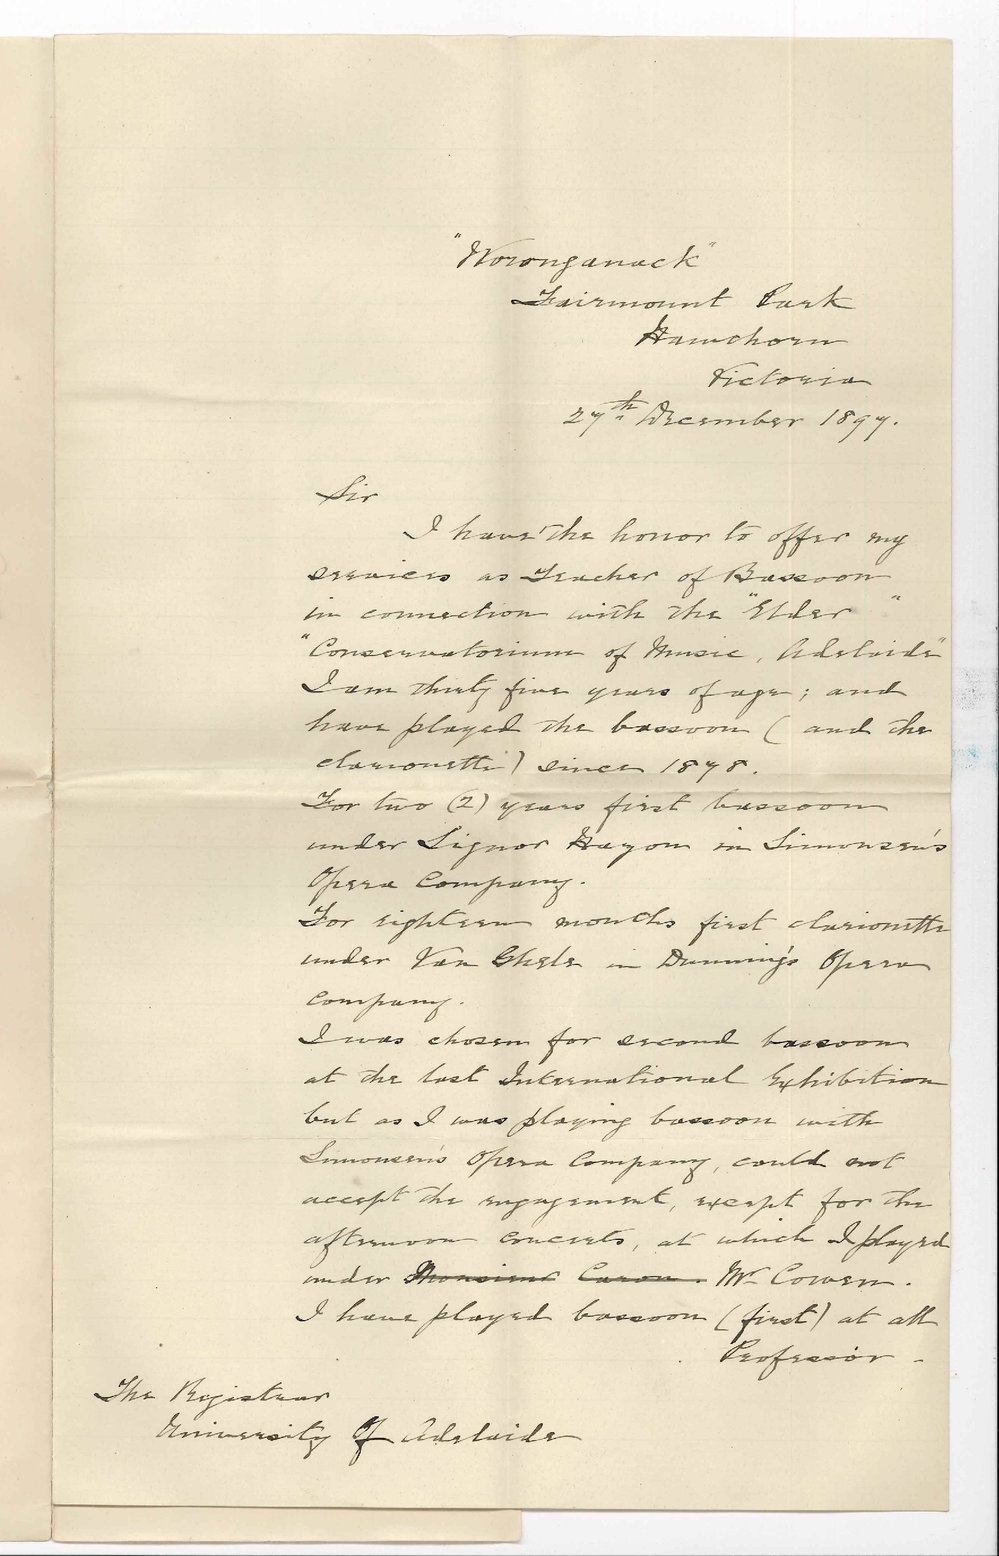 "Woronganack"
Fairmount Park
Hawthorn
Victoria
27th December 1897.
Sir
I have the honor to offer my
services as Teacher of Bassoon
in connection with the "Elder"
"Conservatorium of Music, Adelaide"
I am thirty five years of age; and
have played the bassoon (and the
clarionette) since 1878.
For two (2) years first bassoon
under Signor Hazon in Simonsen's
Opera Company.
For eighteen months first clarionette
under Van Ghele in Dunning's Opera
Company.
I was chosen for second bassoon
at the last International Exhibition
but as I was playing bassoon with
Simonsen's Opera Company, could not
accept the engagement, except for the
afternoon concerts, at which I played
under Monsieur Caron. Mr Cowen.
I have played bassoon (first) at all
Professor -
The Registrar
University Of Adelaide